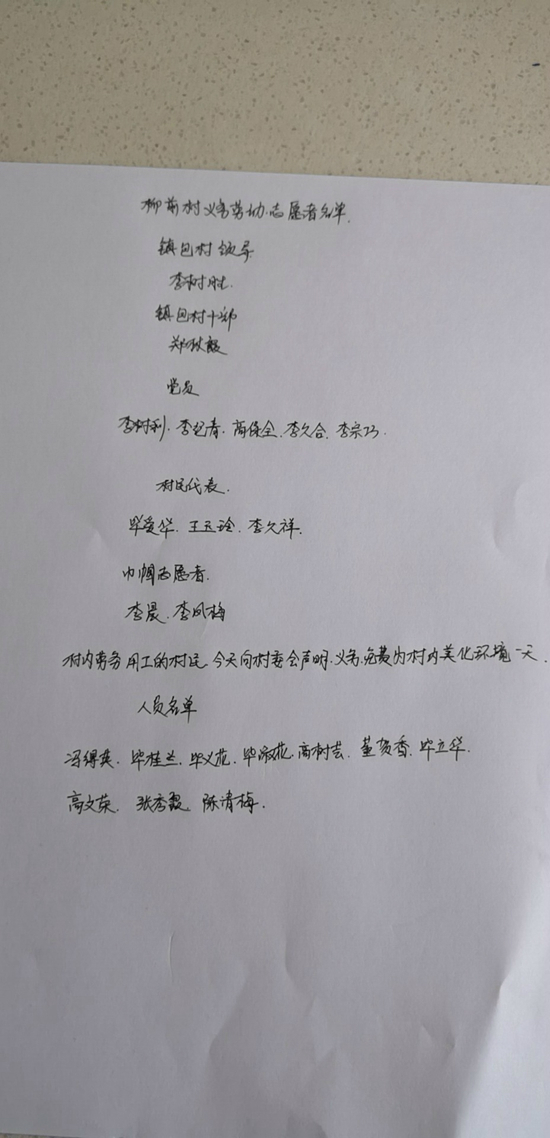 柳前村义务劳动志愿者名单.
镇包村领导
李树胜.
镇包村干部
郑秋毅
党员
李树利. 李起青. 高保全. 李久合. 李宗巧.
村民代表.
毕爱华. 王玉玲. 李久祥.
巾帼志愿者.
李晨. 李凤梅
村内劳务用工的村民. 今天向村委会声明. 义务.免费为村内美化环境一天.
人员名单
冯绵英. 毕桂兰. 毕义花. 毕淑花. 高树芸. 董贺香. 毕立华.
高文荣. 张秀霞. 陈清梅.